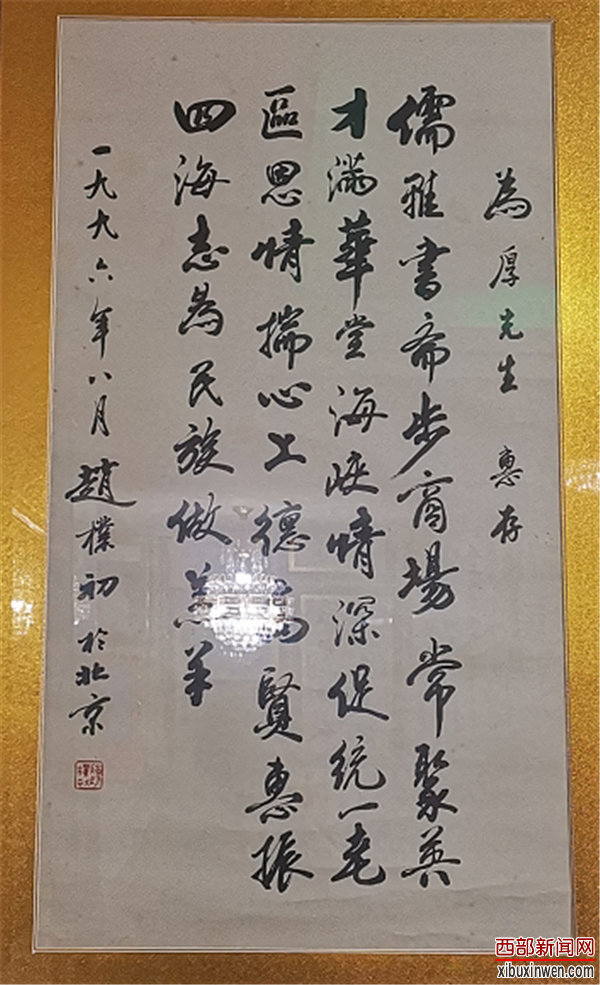 為厚先生 惠存
儒雅書斋步商場常聚英
才滿華堂海峡情深促統一老
區恩情揣心上德高賢惠振
四海志為民族做羔羊
一九九六年八月趙樸初於北京
西部新闻网
xibuxinwen.com